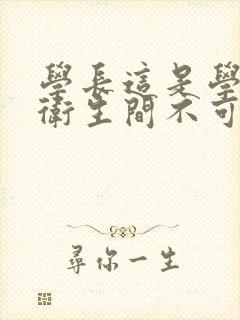 學長這是學
衛生間不可
尋你一生